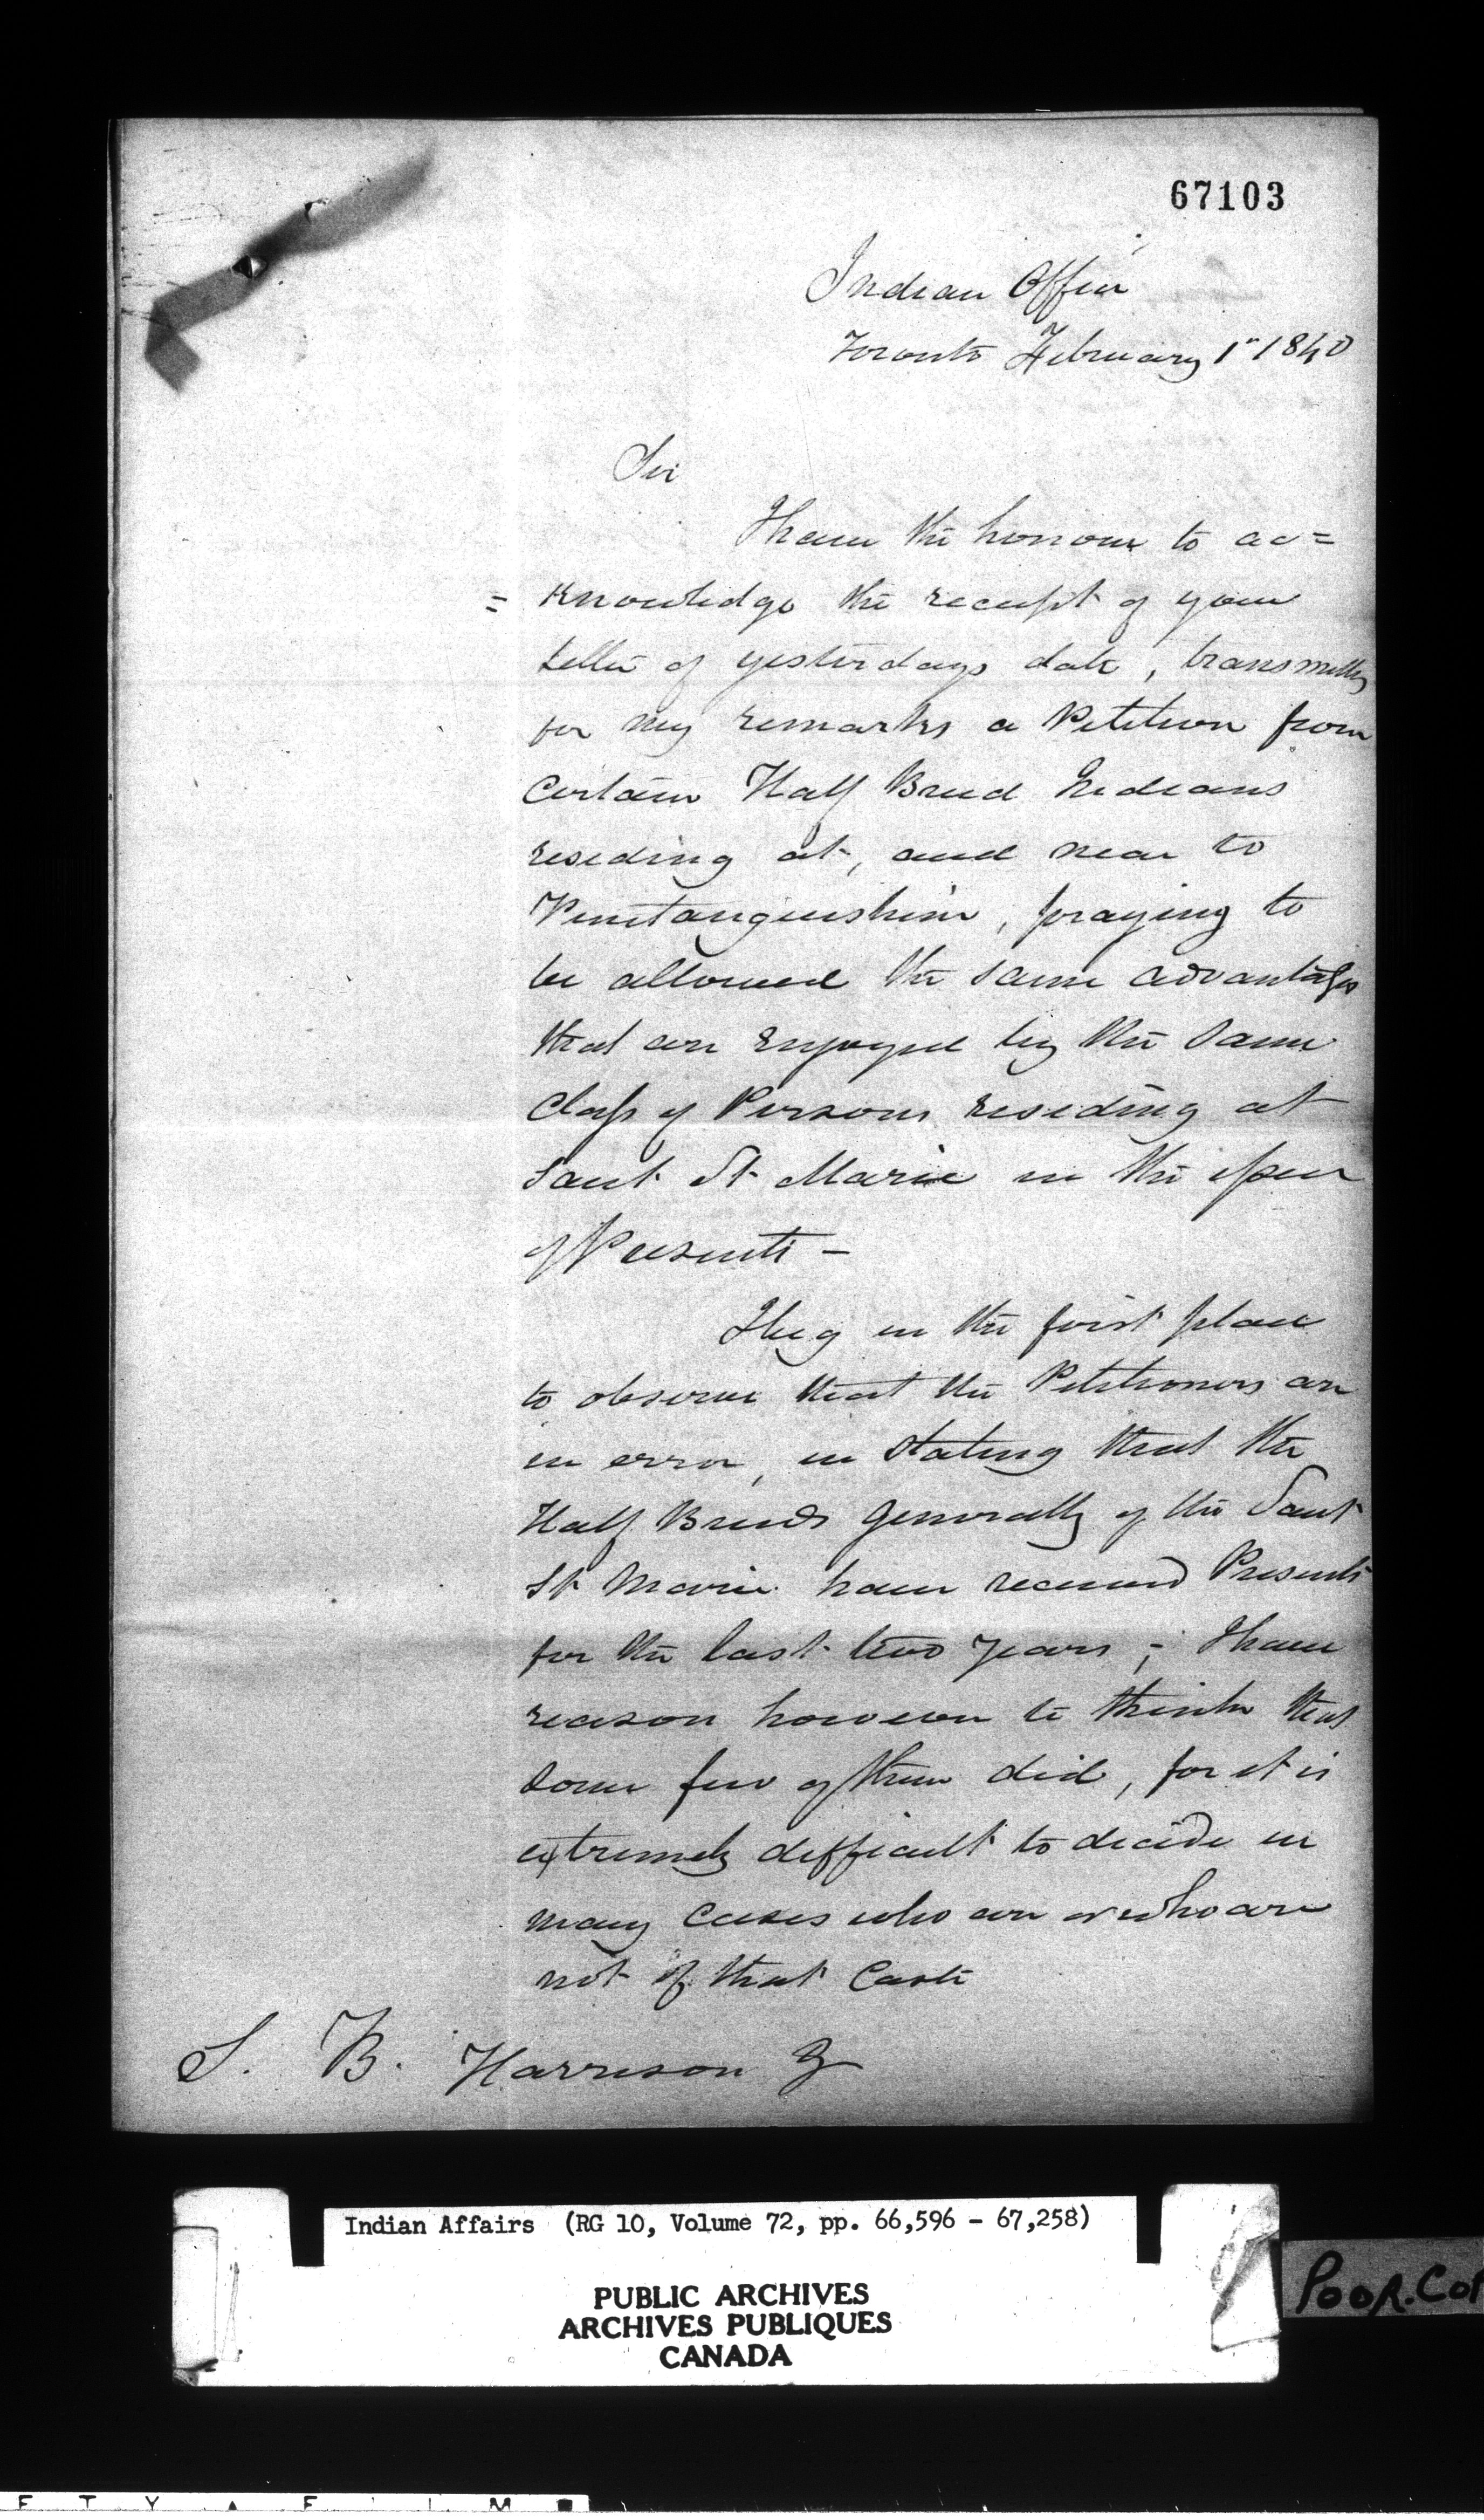 67103
Indian Office
Toronto February 1st 1840
Sir
I have the honour to ac=
= knowledge the receipt of your
letter of yesterdays date, transmitting
for my remarks a Petition from
Certain Half Breed Indians
residing at, and near to
Penetanguishine, praying to
be allowed the same advantages
that are enjoyed by the same
Class of Persons residing at
Saut St Marie in the issue
of Presents –
I beg in the first place
to observe that the Petitioners are
in error, in stating that the
Half Breeds generally of the Saut
St Marie have received Presents
for the last two years ; I have
reason however to think that
some few of them did, for it is
extremely difficult to decide in
many Cases who are or who are
not of that Caste
S. B. Harrison
Indian Affairs (RG 10, Volume 72, pp. 66,596 - 67,258)
PUBLIC ARCHIVES
ARCHIVES PUBLIQUES
CANADA
POOR.COP